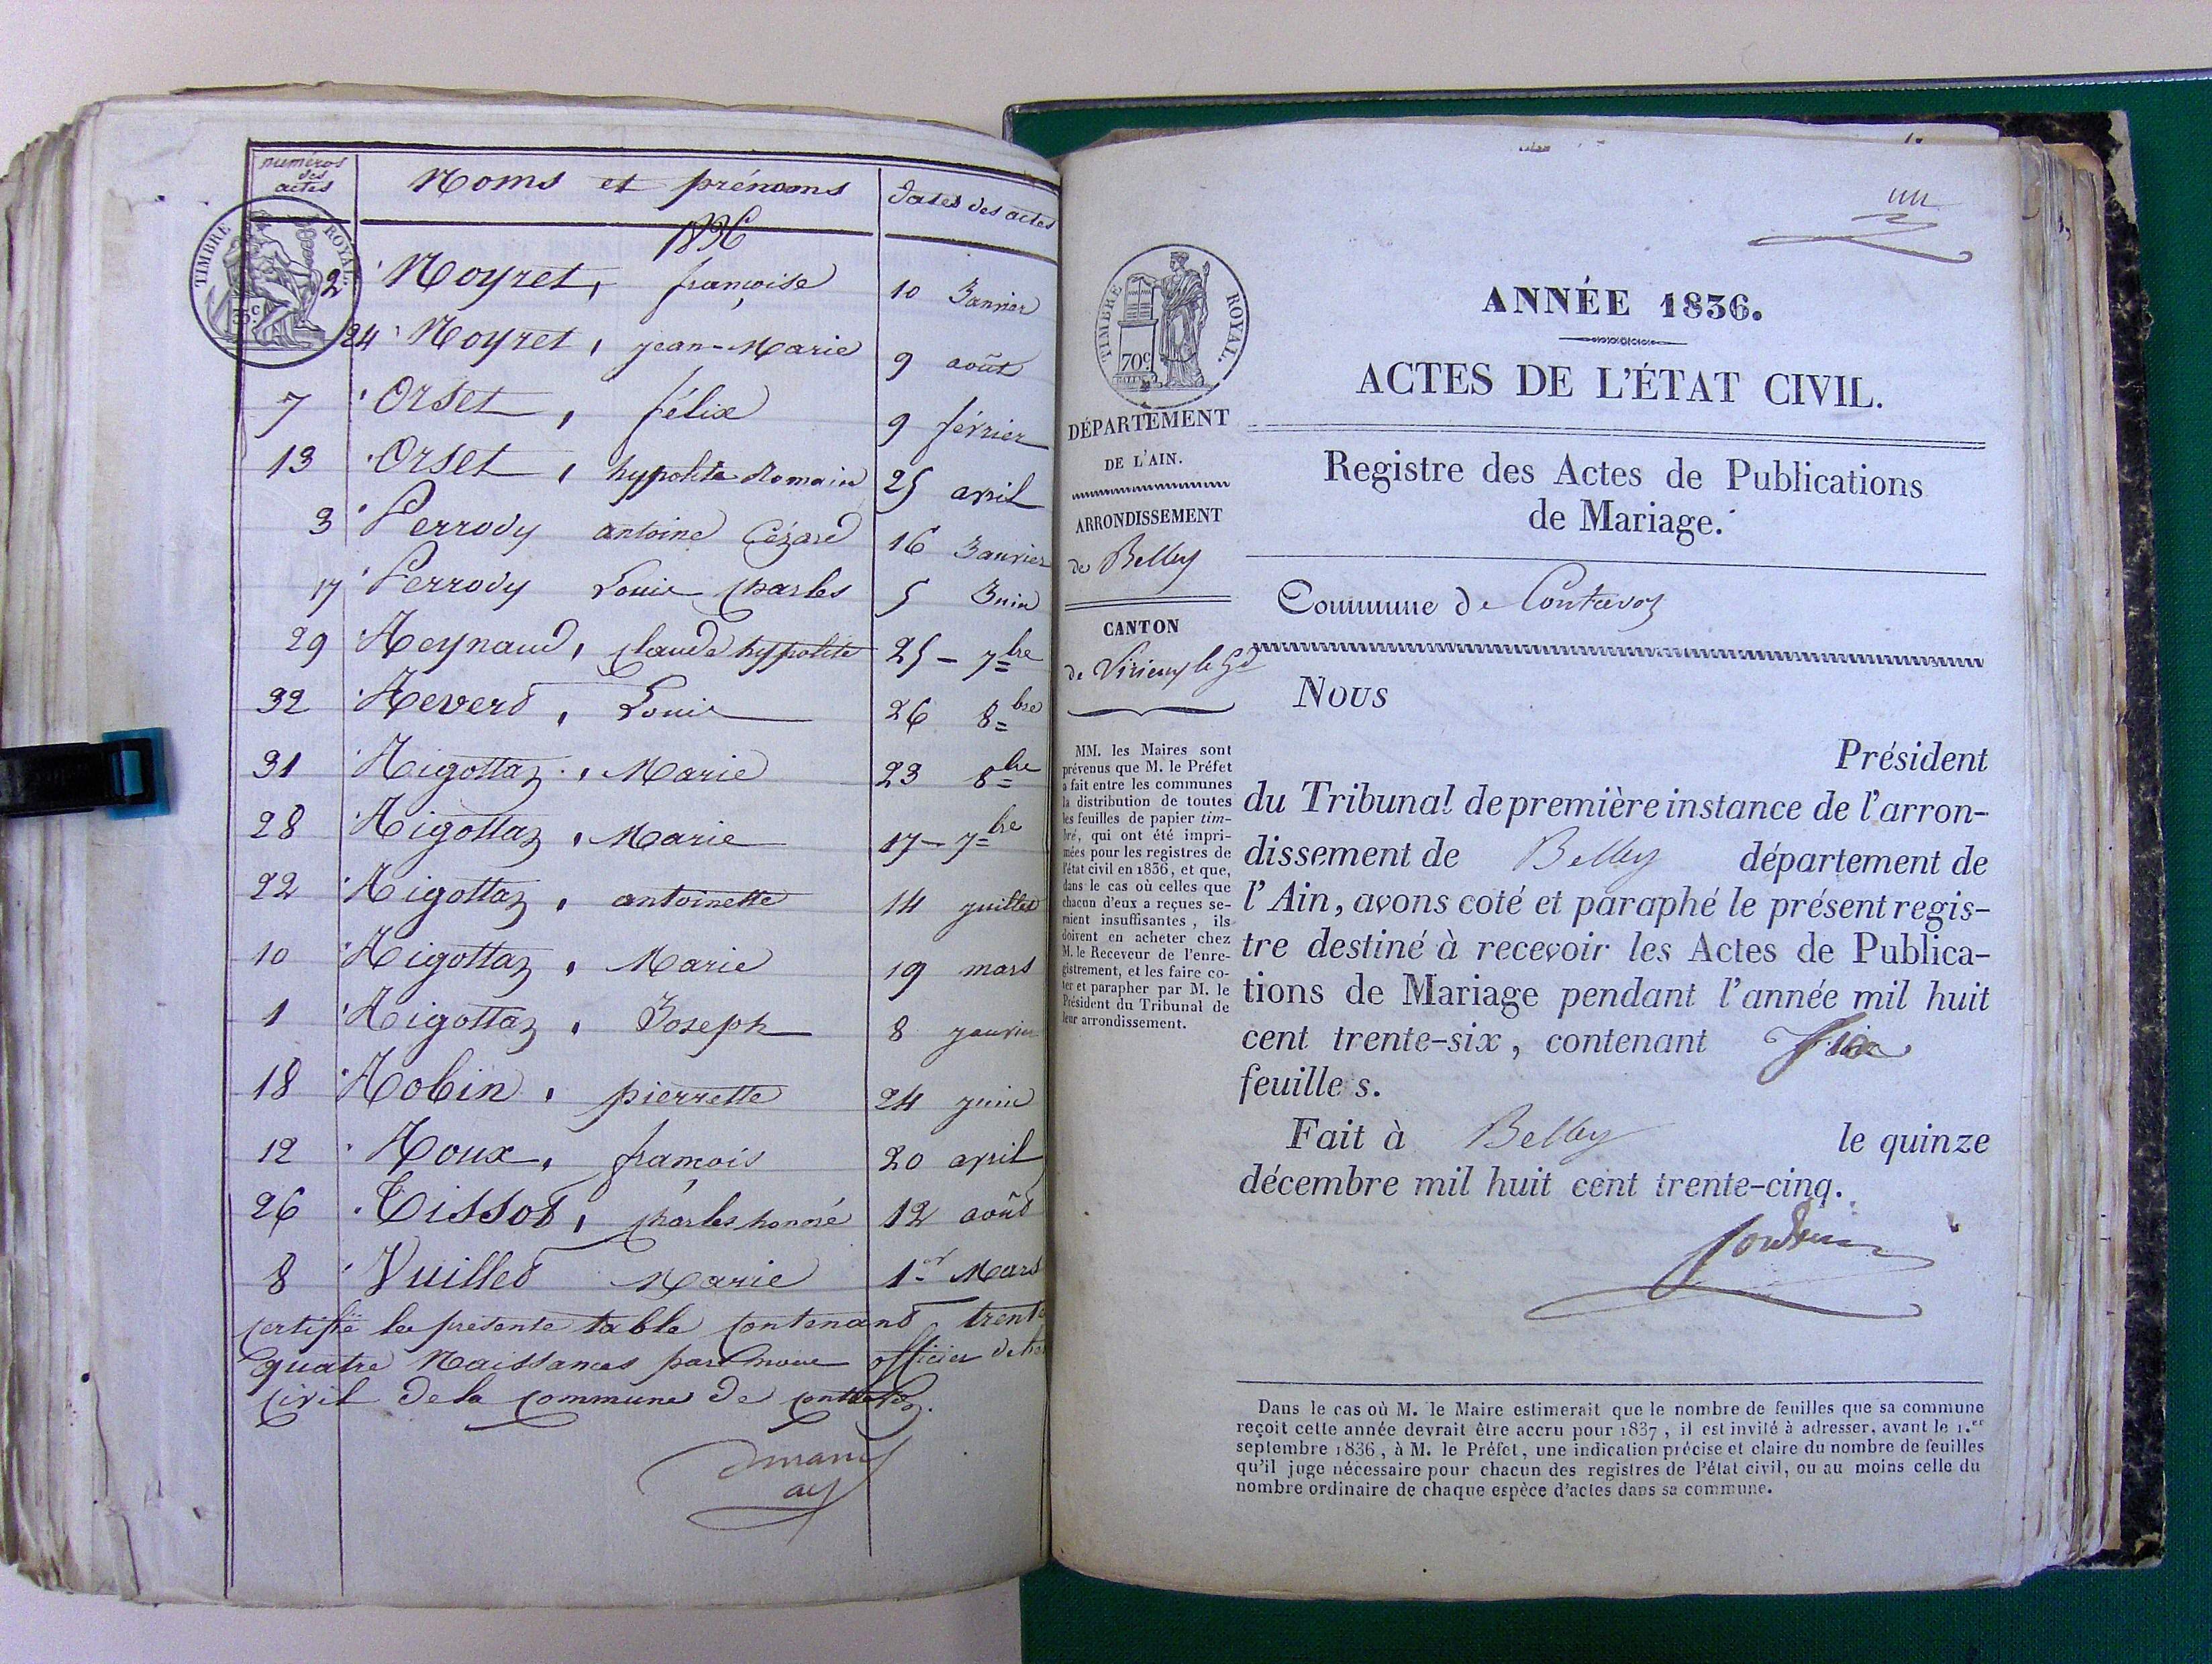 numéros des actes
Noms et prénoms
Dates des actes
TIMBRE ROYAL.
35c
1836
2 Noyret, françoise 10 Janvier
24 Noyret, jean-Marie 9 août
7 Orset, félix 9 février
13 Orset, hypolite Romain 25 avril
3 Perrody antoine Cézard 16 Janvier
17 Perrody Louis Charles 5 Juin
29 Reynaud, claude hypolite 25 - 7bre
32 Reverd, Louis 26 8bre
31 Rigottaz, Marie 23 8bre
28 Rigottaz, Marie 17 - 7bre
22 Rigottaz, antoinette 14 juillet
10 Rigottaz, Marie 19 mars
1 Rigottaz, Joseph 8 janvier
18 Robin, pierrette 24 juin
12 Roux, françois 20 avril
26 Tissot, charles honoré 12 août
8 Vuilled Marie 1er Mars
certifié la présente table contenant trente
quatre Naissances par nous officier de
civil de la commune de contrevoz.
un
TIMBRE ROYAL.
70c
DÉPARTEMENT
DE L'AIN.
ARRONDISSEMENT
de Belley
CANTON
de Virieu le Gd
MM. les Maires sont
prévenus que M. le Préfet
a fait entre les communes
la distribution de toutes
les feuilles de papier tim-
bré, qui ont été impri-
mées pour les registres de
l'état civil en 1836, et que,
dans le cas où celles que
chacun d'eux a reçues se-
raient insuffisantes, ils
doivent en acheter chez
M. le Receveur de l'enre-
gistrement, et les faire co-
ter et parapher par M. le
Président du Tribunal de
leur arrondissement.
ANNÉE 1836.
ACTES DE L'ÉTAT CIVIL.
Registre des Actes de Publications
de Mariage.
Commune de Contrevoz
Nous
Président
du Tribunal de première instance de l'arron-
dissement de Belley département de
l'Ain, avons coté et paraphé le présent regis-
tre destiné à recevoir les Actes de Publica-
tions de Mariage pendant l'année mil huit
cent trente-six, contenant
feuilles.
Fait à Belley le quinze
décembre mil huit cent trente-cinq.
Dans le cas où M. le Maire estimerait que le nombre de feuilles que sa commune
reçoit cette année devrait être accru pour 1837, il est invité à adresser, avant le 1.er
septembre 1836, à M. le Préfet, une indication précise et claire du nombre de feuilles
qu'il juge nécessaire pour chacun des registres de l'état civil, ou au moins celle du
nombre ordinaire de chaque espèce d'actes dans sa commune.